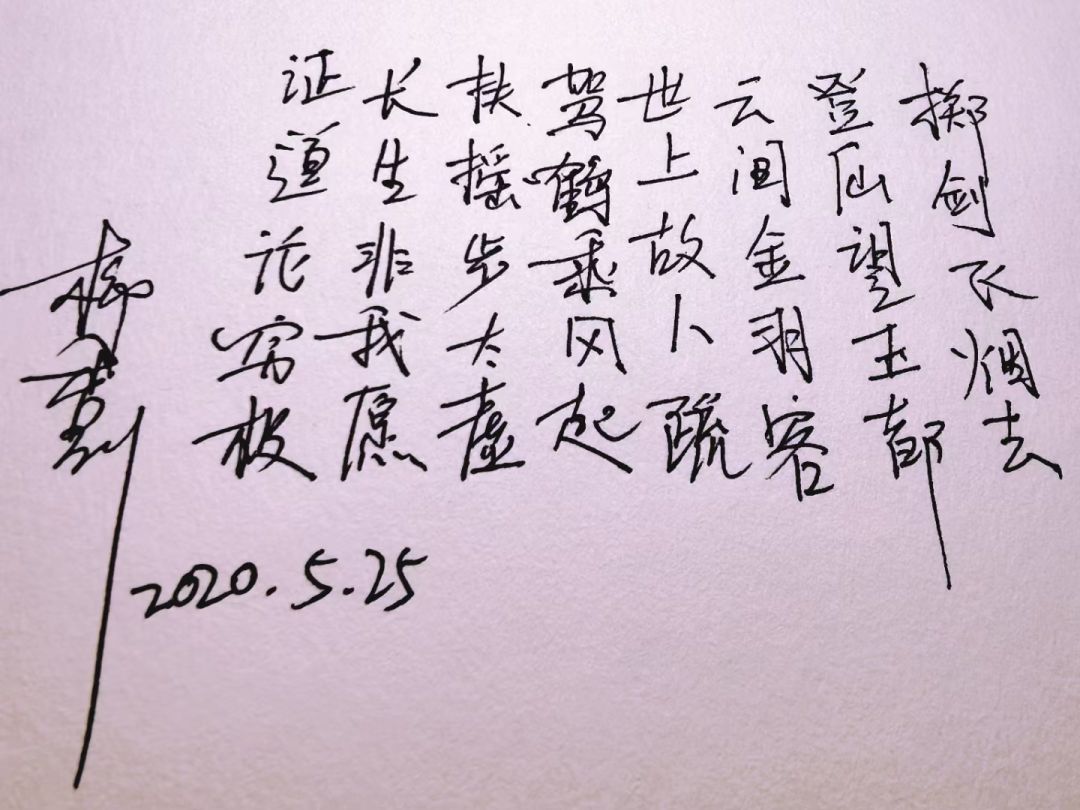 掷剑飞烟去
登仙望玉都
云间金羽客
世上故人疏
驾鹤乘风起
扶摇步太虚
长生非我愿
证道论穷极
2020.5.25